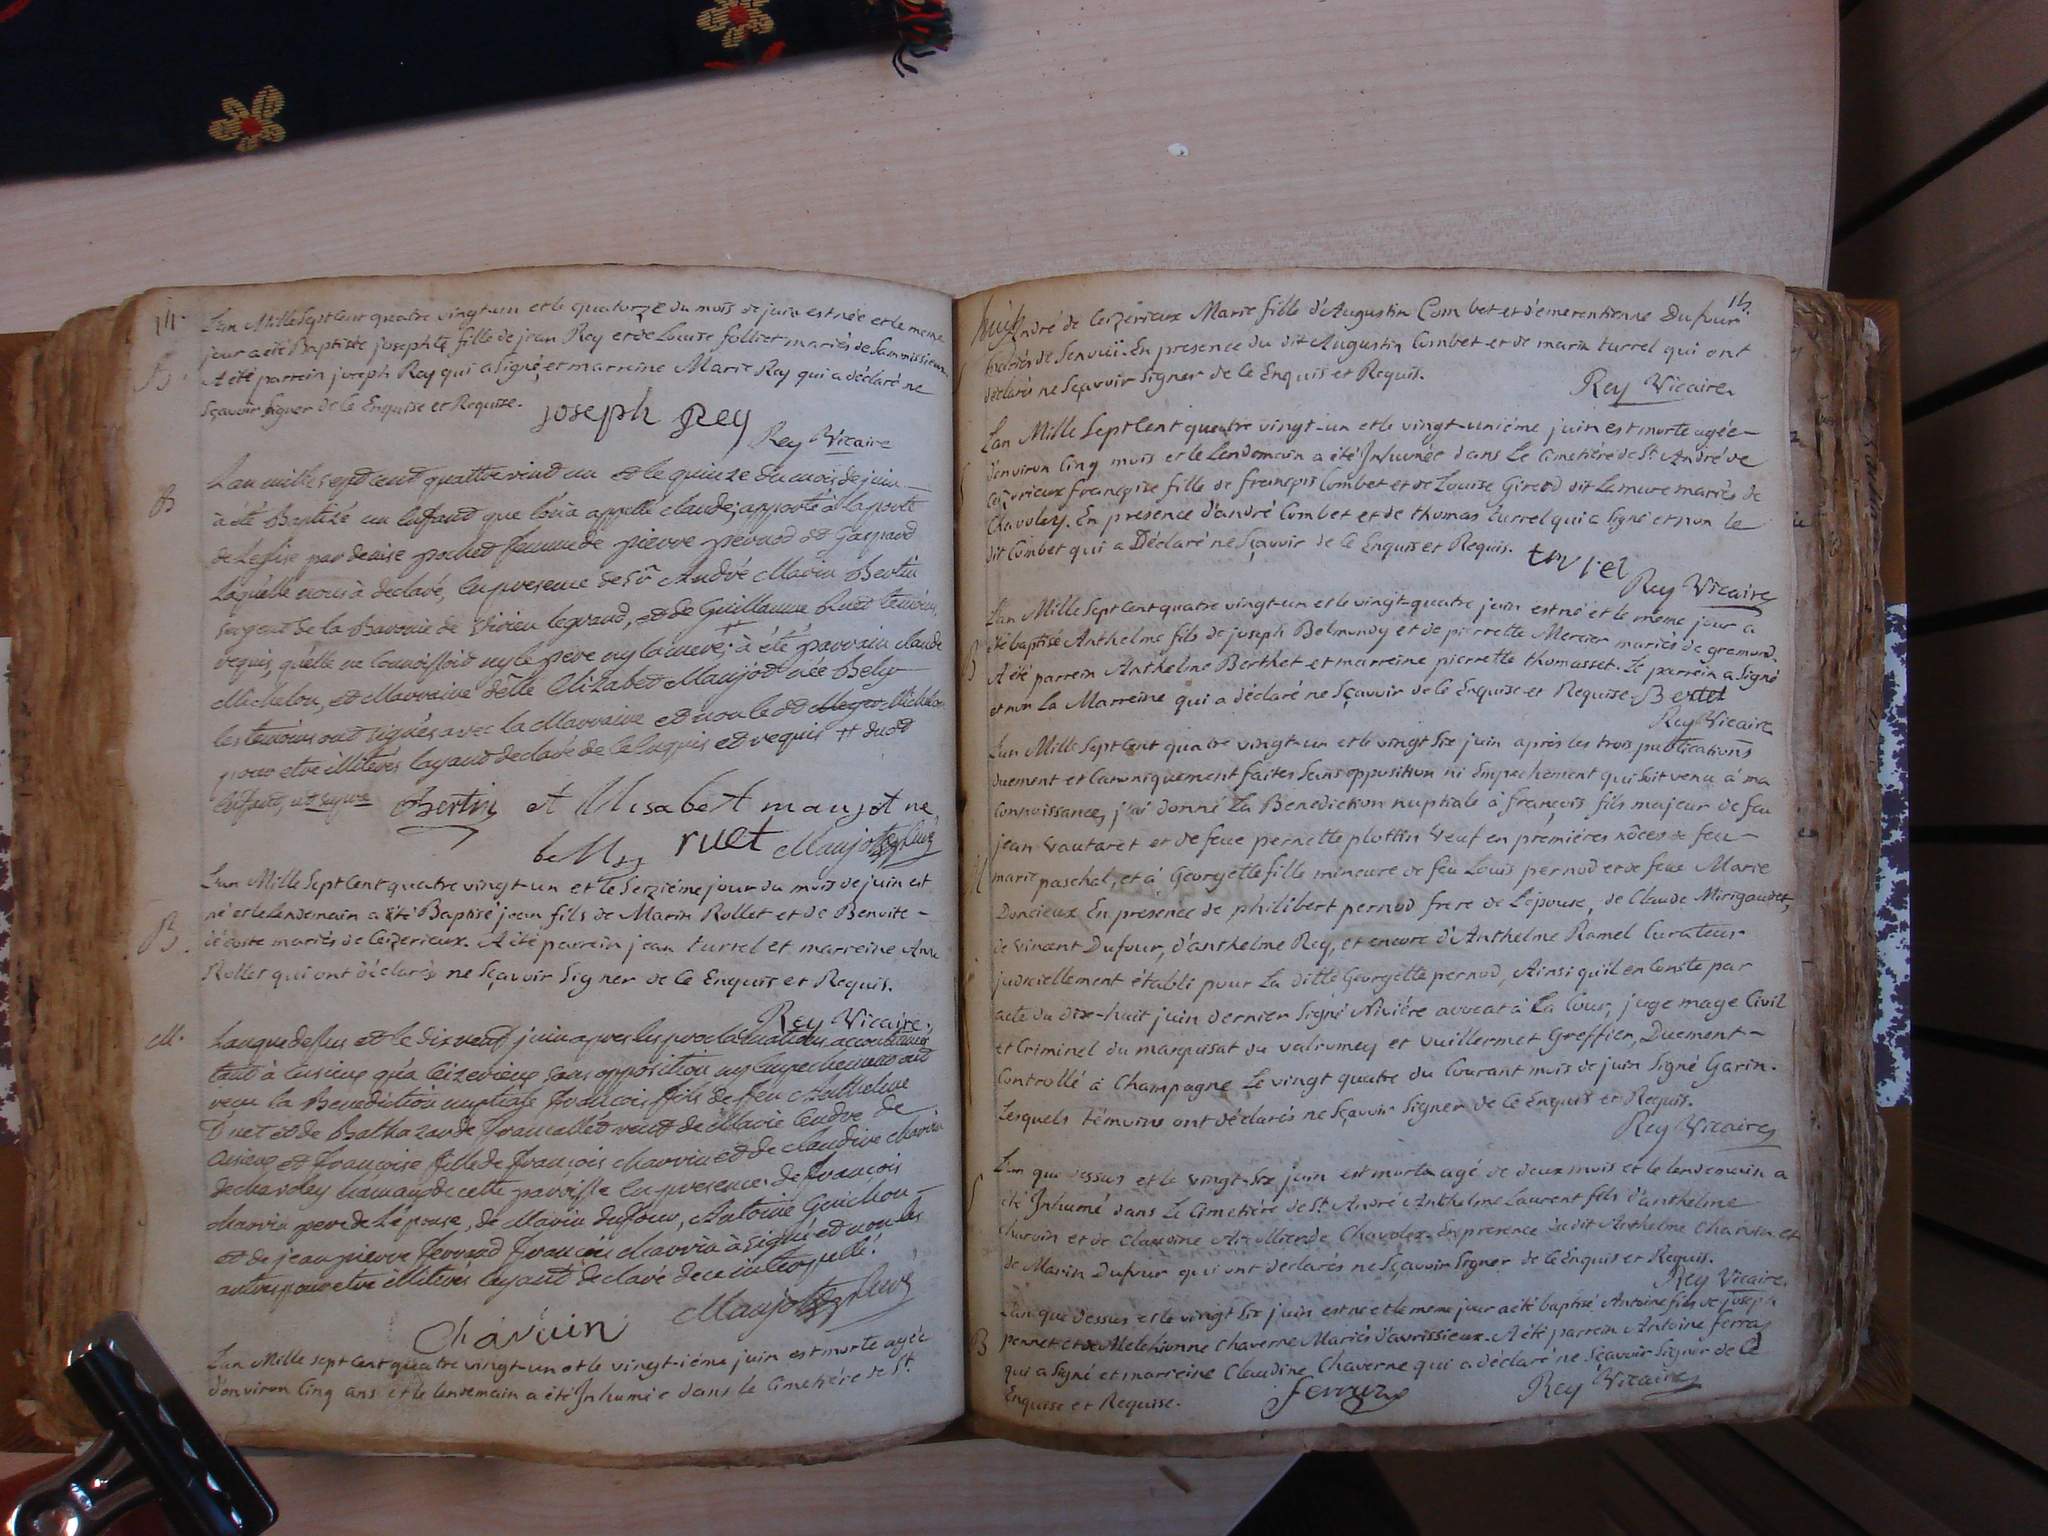 14.
L'an Mille Sept Cent quatre vingt-un et le quatorze du mois de juin est née et le meme
B.
jour a été Baptisée josephte fille de jean Rey et de Louise folliet mariés de Sammissieux.
A été parrein joseph Rey qui a signé, et marreine Marie Rey qui a déclaré ne
sçavoir Signer de Ce Enquise et Requise. joseph Rey
Rey Vicaire
L'an mille sept cent quattre vint un et le quinze du mois de juin
B
à été Baptizé un Enffant que l'on a appellé claude; apporté à la porte
de L'eglise par denise pochet femme de pierre pernod et Gaspard
Laquelle nous à declaré, En presence de Sr André Marin Bertin
sergent de la Baronie de Virieu legrand, et de Guillaume Ruet temoins
requis, qu'elle ne Connoissoit ny le pere ny la mere; ++ à été parrain claude
Michelon, et Marraine delle Elizabet Maujot née Bely
les temoins ont signés avec la Marraine et non le dt Michelon
pour etre illiterés layant declaré de ce Enquis et requis ++ dudt
Enffant, ut supra Bertin et Elisabet maujot ne
beMy ruet Maujot
L'an Mille Sept Cent quatre vingt-un et le Seizième jour du mois de juin est
né et le lendemain a été Baptisé jean fils de Marin Rollet et de Benoite
B.
mariés de Ceizerieux. A été parrein jean turrel et marreine Anne
Rollet qui ont déclarés ne Sçavoir Signer de Ce Enquis et Requis.
Rey Vicaire.
M.
L'an que dessus et le dix neuf juin apres les proclamations accoutumées
tant à Cusieux qu'a Ceizerieux sans opposition ny Empechement ont
recu la Benediction nuptiale francois fils de feu Anthelme
de Balthazarde francallet veuf de Marie de
et francoise fille de francois charvin et de claudine
de chavoley hameau de cette parroisse En presence de francois
charvin pere de L'épouse, de Marin dufour, Antoine Guichon
et de jean pierre ferrand francois charvin à signé et non les
autres pour etre illiterés layant declaré de ce interpellé.
Chavuin Maujot
L'an Mille sept Cent quatre vingt-un et le vingt-iéme juin est morte agée
d'environ Cinq ans et le lendemain a été Inhumée dans le Cimetière de St
15.
André de Ceizerieux Marie fille d'Augustin Combet et d'emerentienne Dufour
mariés de Senvui. En presence du dit Augustin Combet et de marin turrel qui ont
déclarés ne Sçavoir Signer de Ce Enquis et Requis.
Rey Vicaire
L'an Mille Sept Cent quatre vingt-un et le vingt-unième juin est morte agée
d'environ Cinq mois et le Lendemain a été Inhumée dans Le Cimetière de St. André de
Ceizerieux françoise fille de françois Combet et de Louise Girod dit Lamure mariés de
Chavoley. En presence d'andré Combet et de thomas turrel qui a Signé et non le
dit Combet qui a Déclaré ne Sçavoir de Ce Enquis et Requis. turrel
Rey Vicaire
L'an Mille Sept Cent quatre vingt-un et le vingt-quatre juin est né et le meme jour a
B
été baptisé Anthelme fils de joseph Belmondy et de pierrette Mercier mariés de gramond.
A été parrein Anthelme Berthet et marreine pierrette thomasset. Le parrein a Signé
et non La Marreine qui a déclaré ne Sçavoir de Ce Enquise et Requise. Bertet
Rey Vicaire
L'an Mille Sept Cent quatre vingt-un et le vingt Six juin après les trois publications
duement et Canoniquement faites Sans opposition ni Empechement qui Soit venu à ma
Connoissance, j'ai donné La Bénédiction nuptiale à françois fils majeur de feu
jean Vautaret et de feue pernette plottin Veuf en premières nôces de feu
M
marie paschal, et à Georgette fille mineure de feu Louis pernod et de feue Marie
Doncieux En presence de philibert pernod frere de L'épouse, de Claude Mirigaudet,
de Vincent Dufour, d'anthelme Rey, et encore d'Anthelme Ramel Curateur
judiciellement établi pour La ditte Georgette pernod, Ainsi qu'il en Conste par
acte du dix-huit juin dernier Signé Rivière avocat à La Cour, juge mage Civil
et Criminel du marquisat du valromey et Vuillermet Greffier, Duement
Controllé à Champagne Le vingt quatre du Courant mois de juin Signé Garin.
Lesquels témoins ont déclarés ne Sçavoir Signer de Ce Enquis et Requis.
Rey Vicaire
L'an que dessus et le vingt-Six juin est morte agé de deux mois et le lendemain a
S
été Inhumé dans Le Cimetière de St André Anthelme Laurent fils d'anthelme
charvin et de Claudine de Chavoley. En presence du dit Anthelme Charvin et
de Marin Dufour qui ont déclarés ne Sçavoir Signer de Ce Enquis et Requis.
Rey Vicaire
L'an que dessus et le vingt Six juin est né et le meme jour a été baptisé Antoine fils de joseph
B
pernet et de Melchionne Chaverne Mariés d'avrissieux. A été parrein Antoine ferraz
qui a Signé et marreine Claudine Chaverne qui a déclaré ne Sçavoir Signer de Ce
Enquise et Requise. ferraz Rey Vicaire